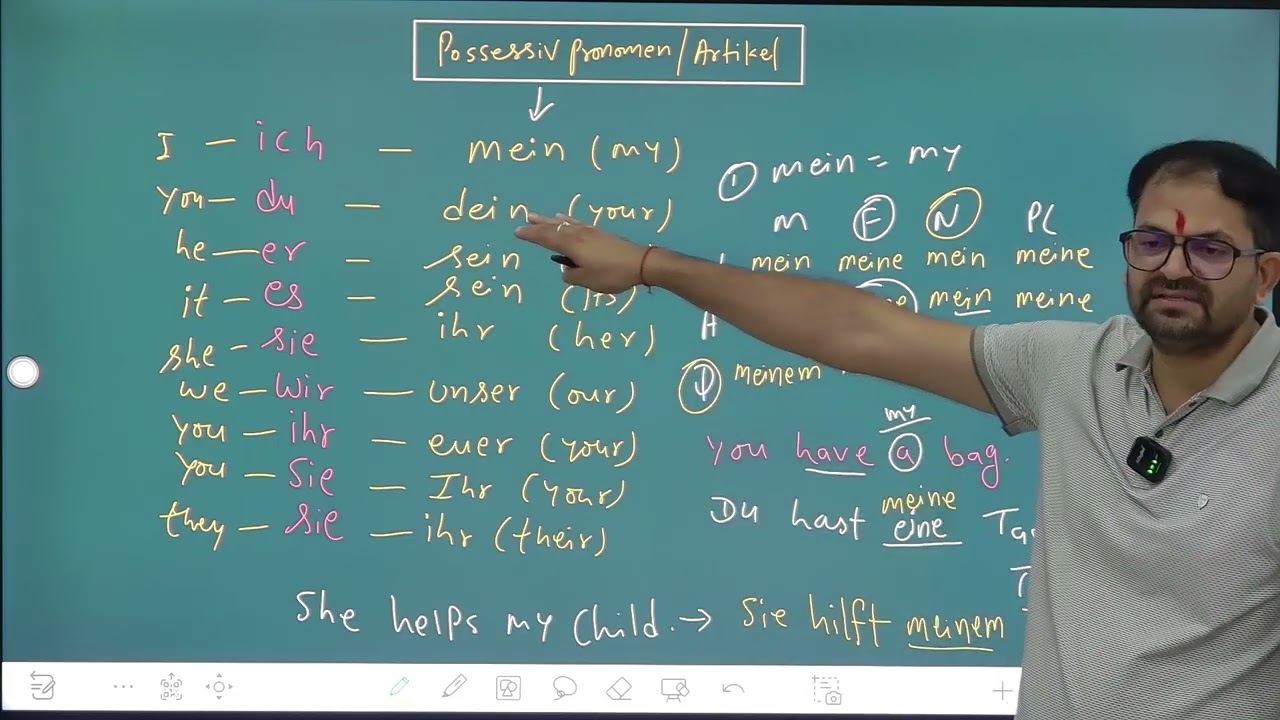 Possessivpronomen/Artikel
I – ich – mein (my)
you – du – dein (your)
he – er – sein
it – es – sein (its)
she – sie – ihr (her)
we – wir – unser (our)
you – ihr – euer (your)
you – Sie – Ihr (your)
they – sie – ihr (their)
① mein = my
M F N Pl
mein meine mein meine
A mein meine
D meinem
my
You have a bag.
meine
Du hast eine
She helps my child. → Sie hilft meinem